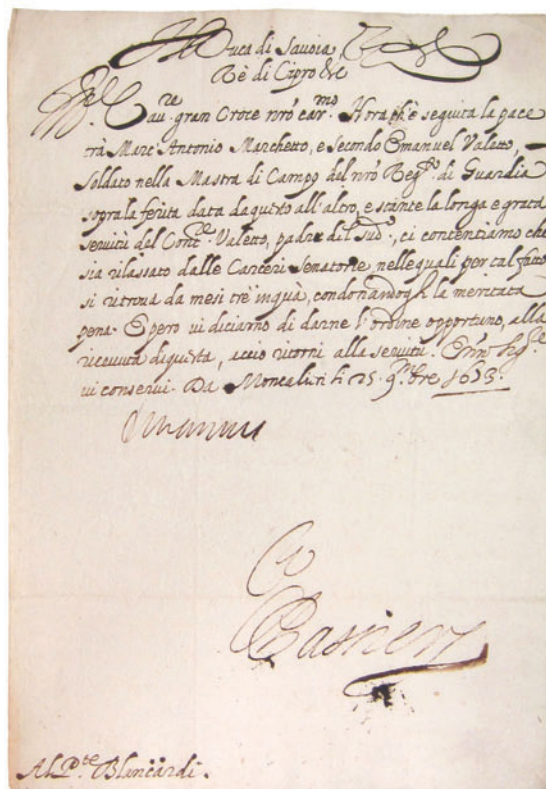 Il Duca di Savoia,
Rè di Cipro &c
Cau.re gran Croce nrõ car.mo Hora ch'è seguita la pace
trà Marc' Antonio Marchetto, e Secondo Emanuel Valetto,
soldato nella Mastra di Campo del nrõ Reg.to di Guardia
sopra la ferita data da questo all'altro, e stante la longa e grata
seruitù del Valetto, padre del sud.o, ci contentiamo che
sia rilassato dalle Carceri Senatorie, nelle quali per tal fatto
si ritroua da mesi trè in quà, condonandogli la meritata
pena. E però ui diciamo di darne l'ordine opportuno, alla
riceuuta di questa, accio ritorni alla seruitù. E
ui conserui. Da Moncalieri li 25. 9mbre
Al P.te Blancardi.